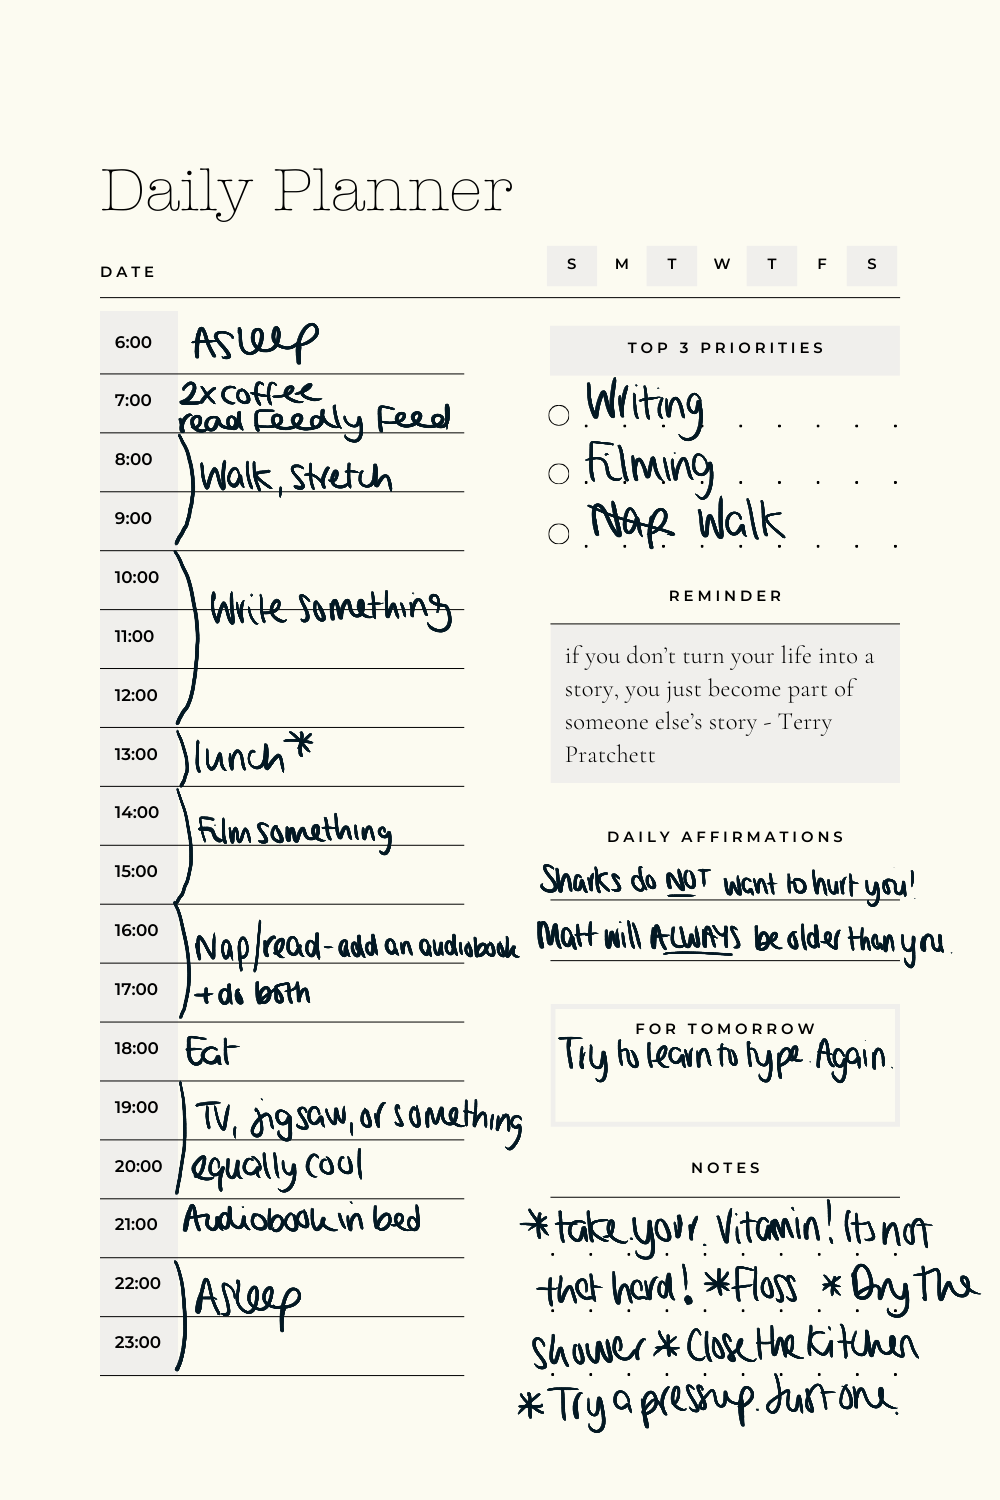 Daily Planner
DATE
S M T W T F S
6:00 Asleep
7:00 2x coffee
read Feedly Feed
8:00 Walk, stretch
9:00
10:00
Write something
11:00
12:00
13:00 lunch*
14:00 Film something
15:00
16:00 Nap/read - add an audiobook
17:00 + do both
18:00 Eat
19:00 TV, jigsaw, or something
20:00 equally cool
21:00 Audiobook in bed
22:00 Asleep
23:00
TOP 3 PRIORITIES
Writing
Filming
Nap Walk
REMINDER
if you don’t turn your life into a
story, you just become part of
someone else’s story - Terry
Pratchett
DAILY AFFIRMATIONS
Sharks do NOT want to hurt you!
Matt will ALWAYS be older than you.
FOR TOMORROW
Try to learn to type. Again.
NOTES
*take your vitamin! Its not
that hard! *Floss *Dry the
shower *Close the kitchen
*Try a pressup. Just one.